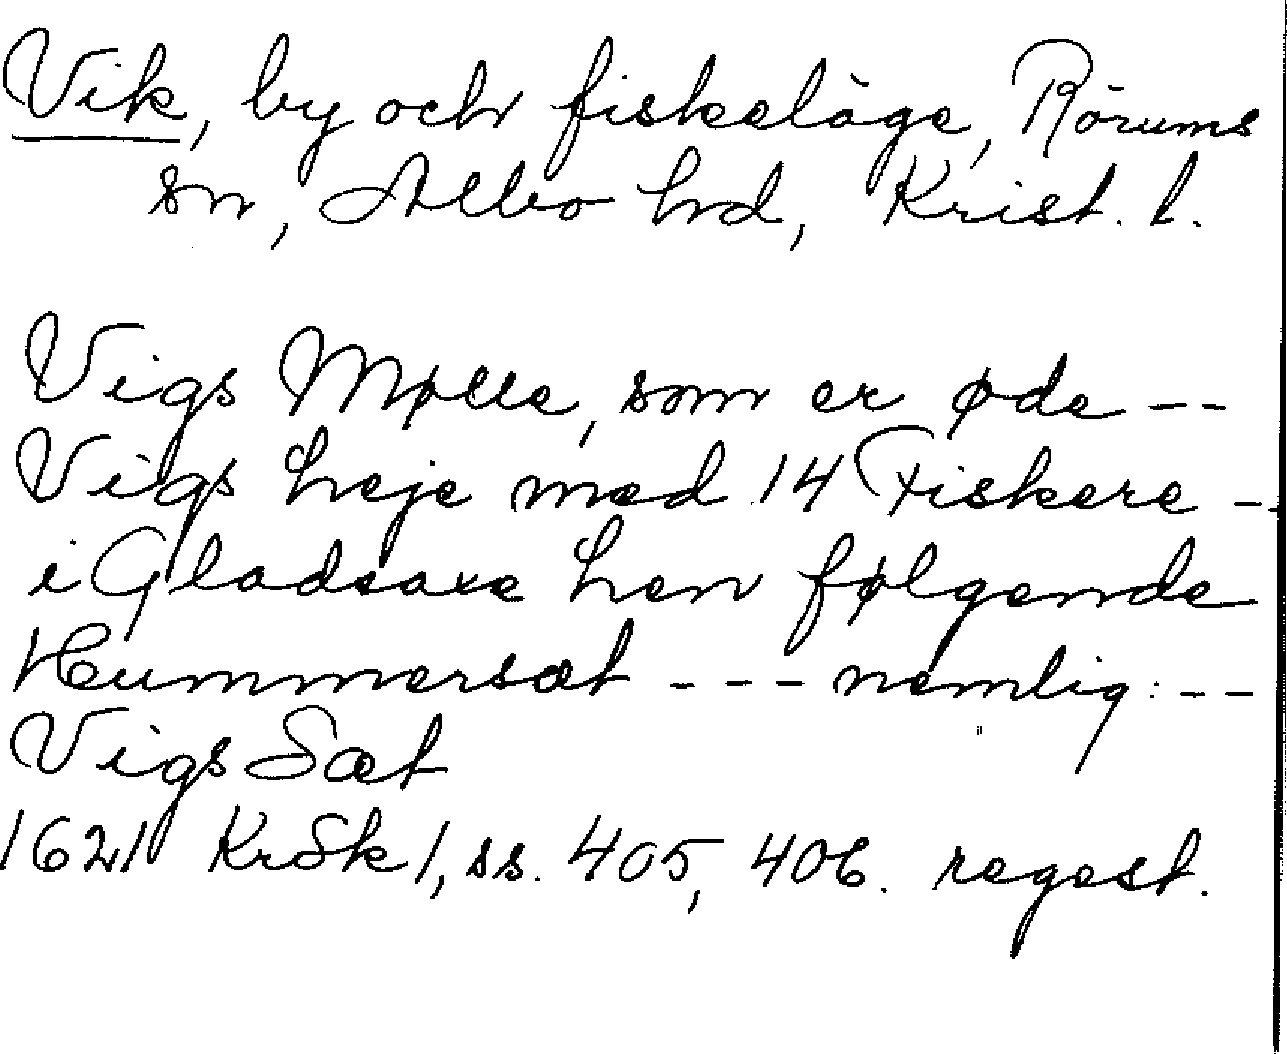 Vik, by och fiskeläge, Rörums
sn, Albo hd, Krist. l.
Vigs Mølle, som er øde --
Vigs Leje med 14 Fiskere --
i Gladsaxe Len følgende
Hummersæt --- nemlig: --
Vigs Sæt
1621 KrSk 1, ss. 405, 406. regest.